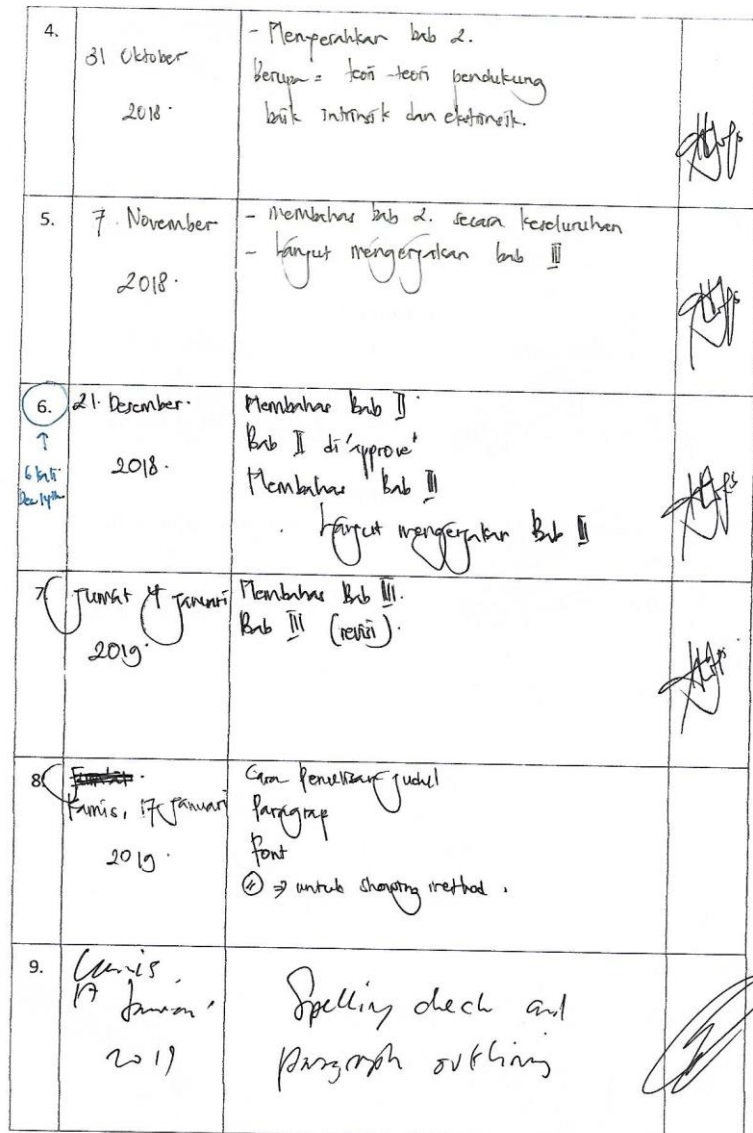 4.
31 Oktober
2018.
- Menyerahkan bab 2.
Berupa = teori-teori pendukung
baik intrinsik dan ekstrinsik.
5.
7. November
2018.
- Membahas bab 2. secara keseluruhan
- Lanjut mengerjakan bab III
6.
21. Desember.
2018.
↑
6 kali
Dec 14th
Membahas Bab II
Bab II di 'approve'
Membahas Bab III
. Lanjut mengerjakan Bab III
7
Jumat 4 Januari
2019.
Membahas Bab III.
Bab III (revisi).
8
Kamis, 17 Januari
2019.
Cara Penulisan judul
Paragrap
Font
⇒ untuk showing method.
9.
Kamis,
17 Januari
2019
Spelling check and
paragraph outlining